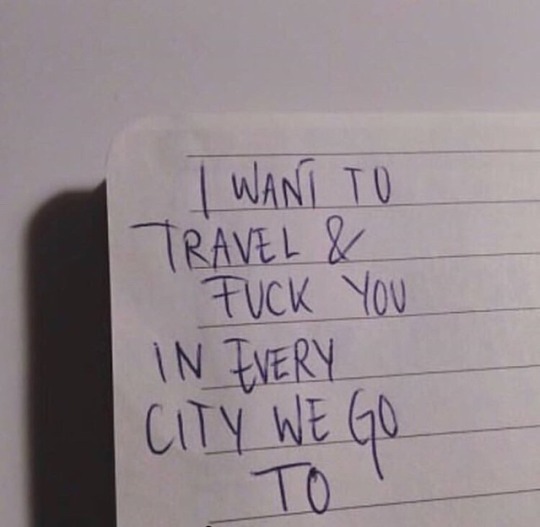 I WANT TO
TRAVEL &
FUCK YOU
IN EVERY
CITY WE GO
TO